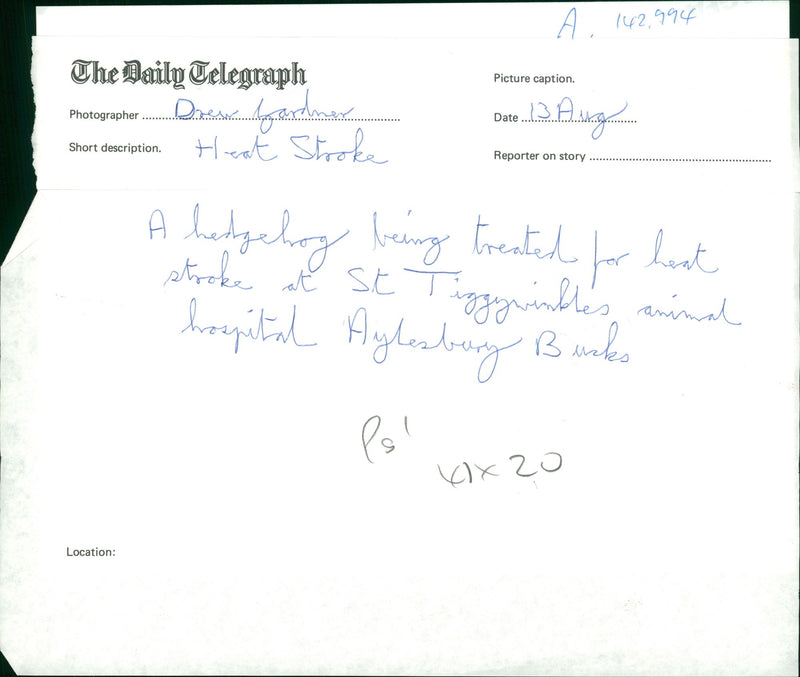 A. 142,994
The Daily Telegraph
Picture caption.
Photographer Drew Gardner
Date 13 Aug
Short description. Heat Stroke
Reporter on story
A hedgehog being treated for heat
stroke at St Tiggywinkles animal
hospital Aylesbury Bucks
x 20
Location: